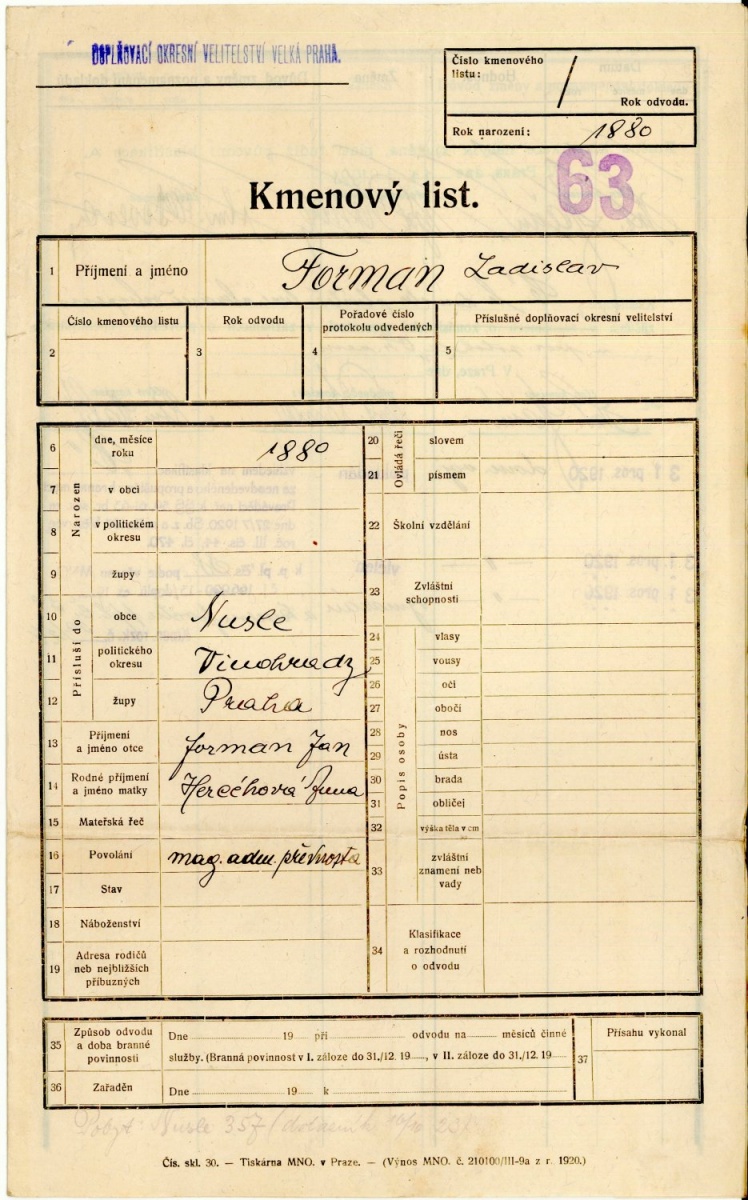 DOPLŇOVACÍ OKRESNÍ VELITELSTVÍ VELKÁ PRAHA.
Číslo kmenového
listu:
/
Rok odvodu.
Rok narození: 1880
63
Kmenový list.
1 Příjmení a jméno Forman Ladislav
2 Číslo kmenového listu
3 Rok odvodu
4 Pořadové číslo
protokolu odvedených
5 Příslušné doplňovací okresní velitelství
Narozen
6 dne, měsíce
roku 1880
7 v obci
8 v politickém
okresu
9 župy
Přísluší do
10 obce Nusle
11 politického
okresu Vinohrady
12 župy Praha
13 Příjmení
a jméno otce Forman Jan
14 Rodné příjmení
a jméno matky Anna
15 Mateřská řeč
16 Povolání mag. adm.
17 Stav
18 Náboženství
19 Adresa rodičů
neb nejbližších
příbuzných
Ovládá řeči
20 slovem
21 písmem
22 Školní vzdělání
23 Zvláštní
schopnosti
Popis osoby
24 vlasy
25 vousy
26 oči
27 obočí
28 nos
29 ústa
30 brada
31 obličej
32 výška těla v cm
33 zvláštní
znamení neb
vady
34 Klasifikace
a rozhodnutí
o odvodu
35 Způsob odvodu
a doba branné
povinnosti
Dne 19 při odvodu na měsíců činné
služby. (Branná povinnost v I. záloze do 31./12. 19, v II. záloze do 31./12. 19
36 Zařaděn Dne 19 k
37 Přísahu vykonal
Pobyt: Nusle 357
Čís. skl. 30. — Tiskárna MNO. v Praze. — (Výnos MNO. č. 210100/III-9a z r. 1920.)